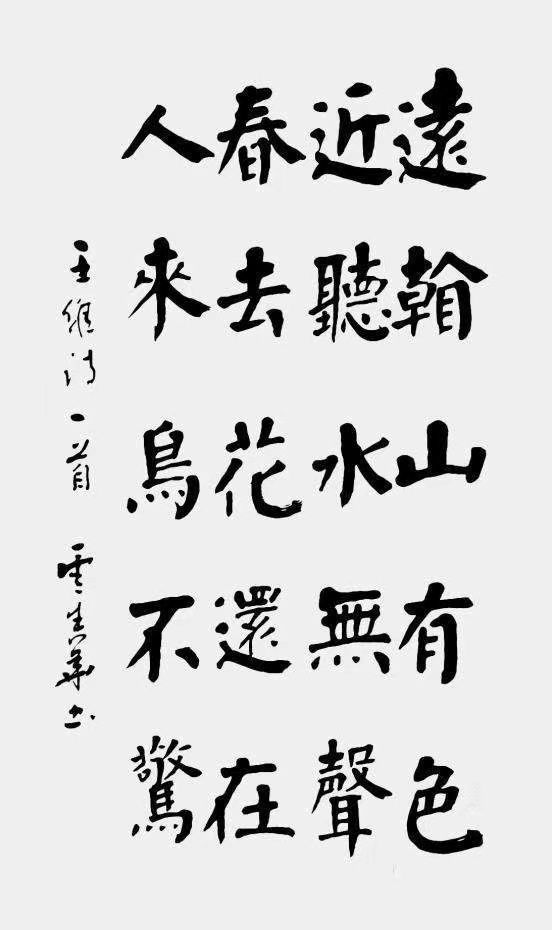 遠看山有色
近聽水無聲
春去花還在
人來鳥不驚
王維詩一首